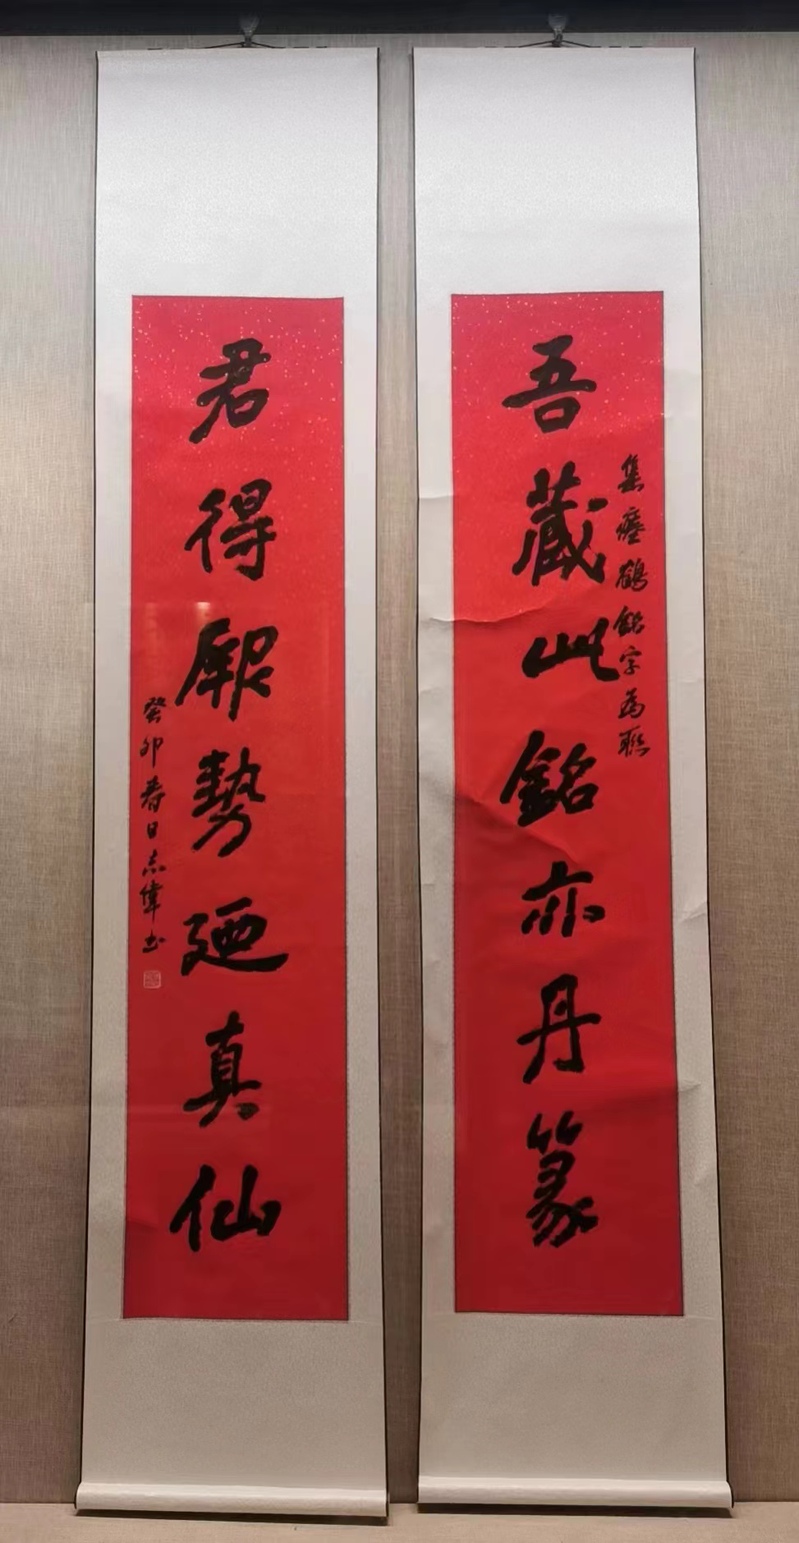 吾藏此銘亦丹篆
集瘞鶴銘字為聯
君得厥勢廼真仙
癸卯春日志偉书